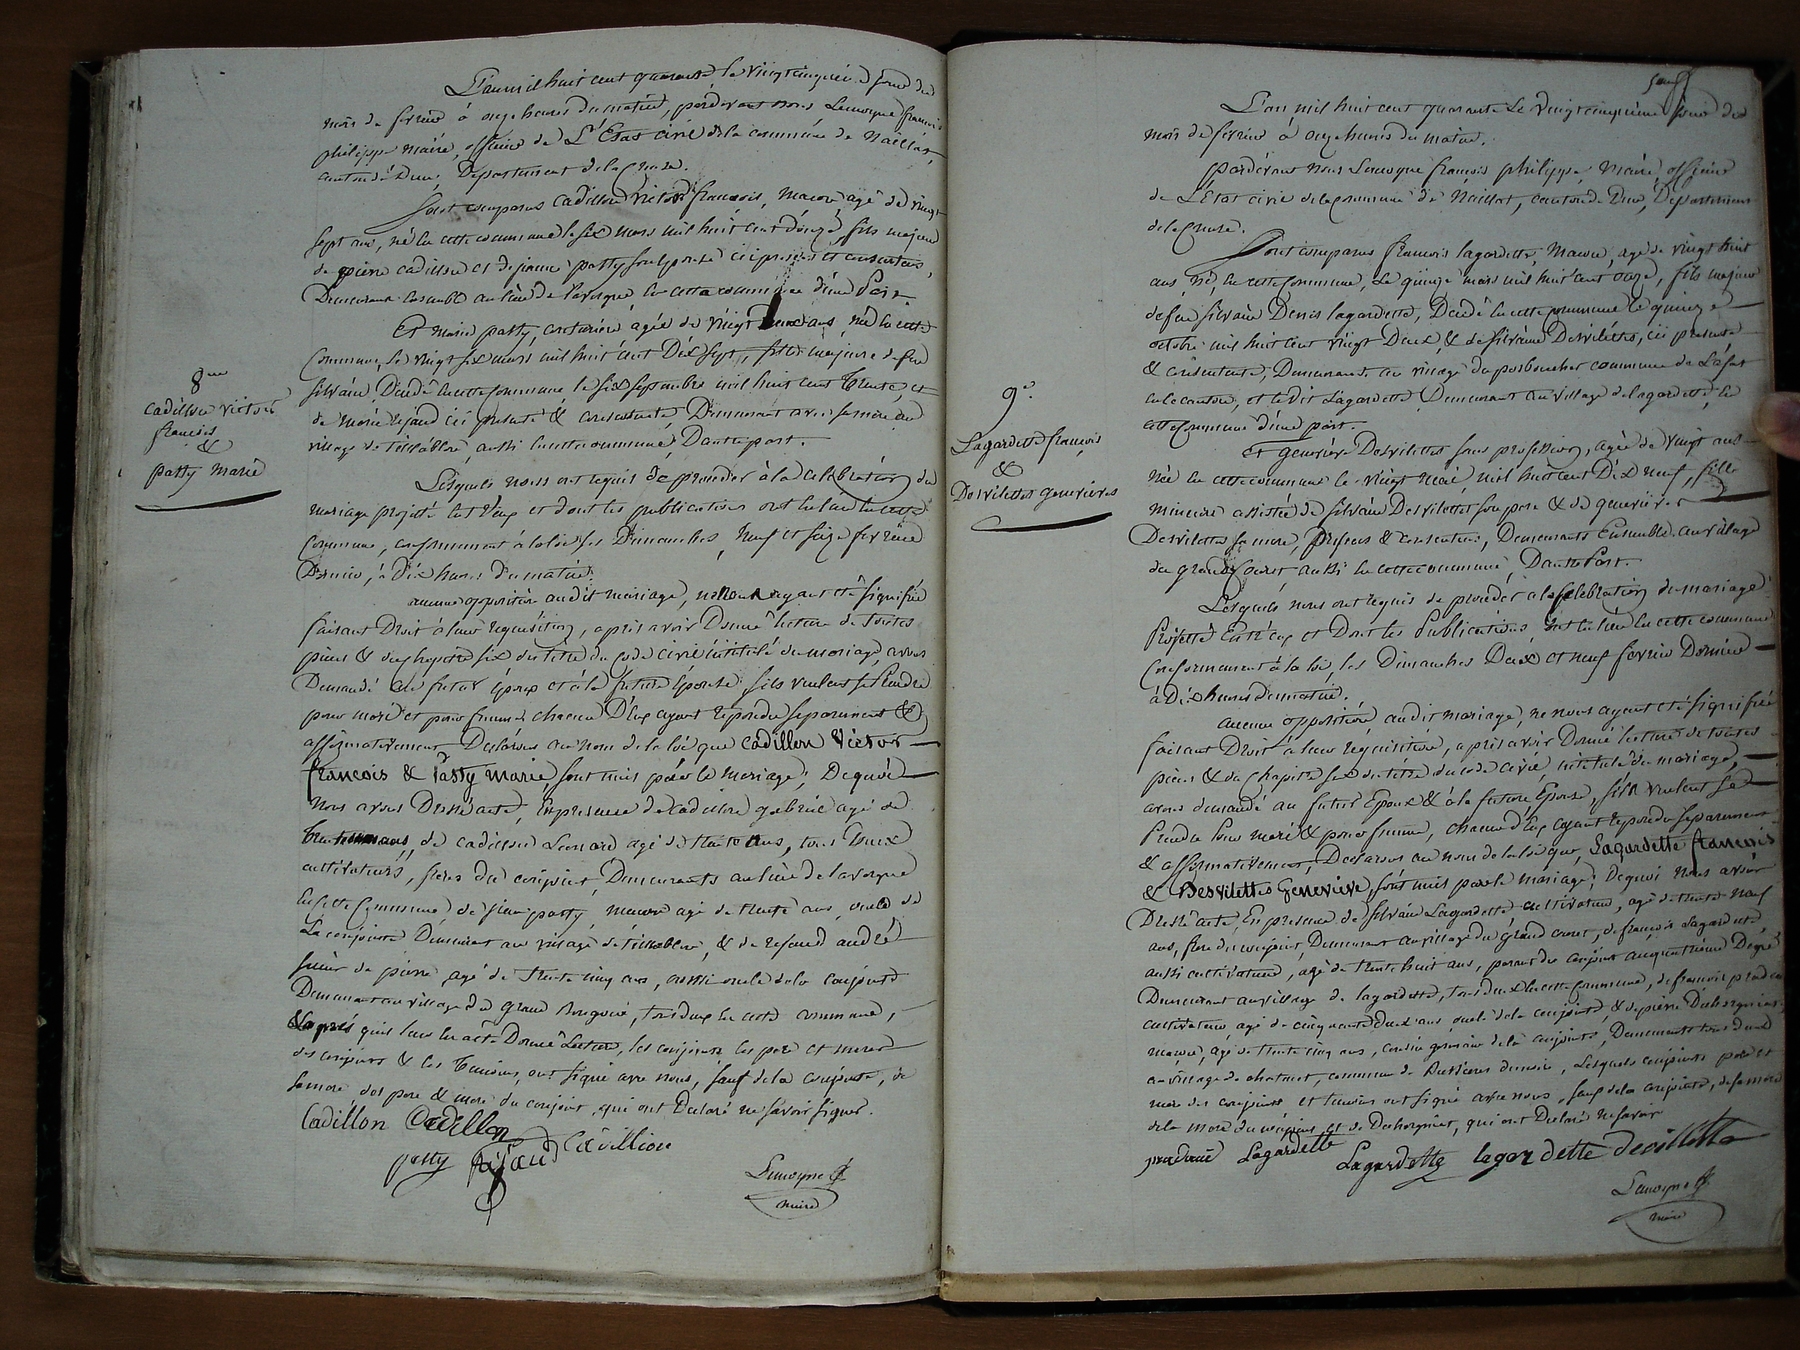 L'an mil huit cent quarante le vingt cinquième jour du
mois de fevrier à onze heures du matin, pardevant nous Lemoyne françois
philippe maire, officier de L'Etat civil de la commune de Naillat,
canton de Dun, Département de la Creuse.
Sont comparus Cadillon victor françois, macon agé de vingt
sept ans, né en cette commune le six mars mil huit cent douze, fils majeur
de pierre cadillon et de jeanne patty son épouse ici présents et consentans,
Demeurant Ensemble au lieu de lavergne, en cette commune d'une Part.
Et marie patty, couturière agée de vingt deux ans, née en cette
Commune, le vingt six mars mil huit cent Dix sept, fille majeure de feu
silvain, Décédé en cette commune, le six septembre mil huit cent trente, et
de marie rejaud ici présente & consentante, Demeurant avec sa mère au
village de aussi en cette commune, D'autre part.
8eme
cadillon victor
françois
&
patty marie
Lesquels nous ont requis de procéder à la celebration du
mariage projetté entr'eux et dont les publications ont eu lieu en cette
Commune, conformement à la loi les Dimanches, neuf et seize fevrier
Dernier, à dix heures du matin.
aucune opposition audit mariage, ne nous ayant été signifiée
faisant Droit à leur requisition, après avoir Donné lecture de toutes
pièces & du chapitre six du titre du code civil intitulé du mariage, avons
Demandé au futur époux et à la future épouse, s'ils veulent se Prendre
pour mari et pour femme, chacun D'eux ayant repondu séparément &
affirmativement, Déclarons au nom de la loi que Cadillon Victor
françois & Patty marie, sont unis par le mariage; De quoi
Nous avons Dressé acte, En présence de Cadillon gabriel agé de
ans, de cadillon Léonard agé de trente ans, tous Deux
cultivateurs, frères du conjoint, Demeurants au lieu de lavergne
en cette Commune, de jean patty, macon agé de trente ans, oncle de
La conjointe Demeurant au village de & de rejaud andré
de pierre agé de trente cinq ans, aussi oncle de la conjointe
Demeurant au village du Grand tous deux en cette commune,
& après qu'il leur en a été Donné Lecture, les conjoints les père et mères
des conjoints & les témoins, ont signé avec nous, sauf de la conjointe, de
sa mère des père & mère du conjoint, qui ont Déclaré ne savoir signer.
Cadillon Cadillon
patty rejaud Cadillion
Lemoyne fp
maire
L'an mil huit cent quarante Le vingt cinquième jour du
mois de fevrier à onze heures du matin.
pardevant nous Lemoyne françois philippe Maire, officier
de L'Etat civil de la commune de Naillat, canton de Dun, Département
de la Creuse.
Sont comparus françois lagardette, Macon, agé de vingt huit
ans, né en cette Commune, Le quinze mars mil huit cent onze, fils majeur
de feu silvain Denis lagardette, Décédé en cette commune le quinze
octobre mil huit cent vingt Deux, & de silvaine Desvilettes, ici présente
& consentante, Demeurant au village du commune de Lafat
en le canton, et ledit Lagardette Demeurant au village de lagardette, en
cette Commune d'une part.
Et geneviève Desvilettes sans profession, agée de vingt ans
née en cette commune le vingt mai, mil huit cent Dix neuf, fille
mineure assistée de silvain Desvilettes son père & de geneviève
Desvilettes sa mère, présens & consentens, Demeurants Ensemble au village
du grand Couret aussi en cette commune, D'autre Part.
9e
Lagardette françois
&
Desvilettes geneviève
Lesquels nous ont requis de procéder à la celebration du mariage
Projetté Entr'eux et Dont les Publications, ont eu lieu en cette commune
Conformement à la loi, les Dimanches Deux et neuf fevrier Dernier
à Dix heures du matin.
aucune opposition, audit mariage, ne nous ayant été signifiée
faisant Droit à leur requisition, après avoir Donné lecture de toutes
pièces & du chapitre six du titre du code civil intitulé du mariage,
avons demandé au futur Epoux & à la future Epouse, s'ils veulent se
Prendre Pour mari & pour femme, chacun d'eux ayant repondu séparément
& affirmativement, Declarons au nom de la loi que, Lagardette françois
& Desvilettes Geneviève, sont unis par le mariage; De quoi Nous avons
Dressé acte, En présence de silvain Lagardette cultivateur, agé de trente neuf
ans, frère du conjoint, Demeurant au village du grand couret, de françois Lagardette
aussi cultivateur, agé de trente huit ans, parent du conjoint au quatrième Degré
Demeurant au village de lagardette, tous deux en cette Commune, de françois
cultivateur agé de cinquante deux ans, oncle de la conjointe, & de pierre
macon, agé de trente cinq ans, cousin germain de la conjointe, Demeurants tous deux
au village de chatenet, commune de Lesquels conjoints père et
mère des conjoints et témoins ont signé avec nous, sauf de la conjointe, de sa mère
de la mère du conjoint et de qui ont Déclaré ne savoir
Lagardette Lagardette lagardette desvillette
Lemoyne fp
maire